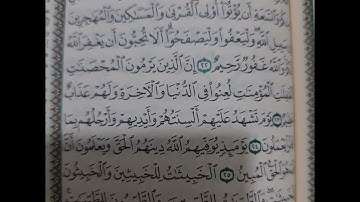 وَالسَّعَةِ أَن يُؤْتُوٓا۟ أُو۟لِى الْقُرْبَىٰ وَالْمَسَٰكِينَ وَالْمُهَٰجِرِينَ
سَبِيلِ اللَّهِ وَلْيَعْفُوا۟ وَلْيَصْفَحُوٓا۟ أَلَا تُحِبُّونَ أَن يَغْفِرَ اللَّهُ
وَاللَّهُ غَفُورٌ رَّحِيمٌ ٢٢ إِنَّ الَّذِينَ يَرْمُونَ الْمُحْصَنَٰتِ
الْغَٰفِلَٰتِ الْمُؤْمِنَٰتِ لُعِنُوا۟ فِى الدُّنْيَا وَالْءَاخِرَةِ وَلَهُمْ عَذَابٌ
٢٣ يَوْمَ تَشْهَدُ عَلَيْهِمْ أَلْسِنَتُهُمْ وَأَيْدِيهِمْ وَأَرْجُلُهُم بِمَا
يَعْمَلُونَ ٢٤ يَوْمَئِذٍ يُوَفِّيهِمُ اللَّهُ دِينَهُمُ الْحَقَّ وَيَعْلَمُونَ أَنَّ
هُوَ الْحَقُّ الْمُبِينُ ٢٥ الْخَبِيثَٰتُ لِلْخَبِيثِينَ وَالْخَبِيثُونَ